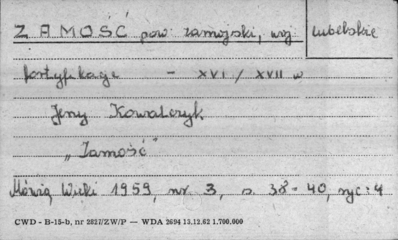 ZAMOŚĆ pow. zamojski, woj. lubelskie
fortyfikacje - XVI / XVII w
Jerzy Kowalczyk
"Zamość"
Mówią Wieki 1959, nr. 3, s. 38-40, ryc. 4
CWD - B-15-b, nr 2827/ZW/P — WDA 2694 13.12.62 1.700.000